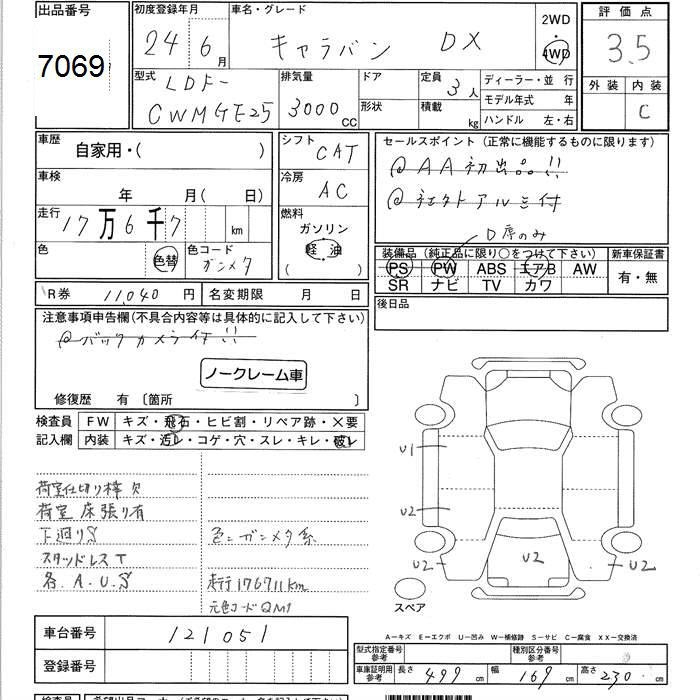 出品番号
7069
初度登録年月
24 6月
車名・グレード
キャラバン DX
2WD
4WD
評価点
3.5
外装 内装
C
型式
LDF-
CWMGE25
排気量
3000 CC
ドア
形状
定員
3人
積載
kg
ディーラー・並 行
モデル年式 年
ハンドル 左・右
車歴
自家用・( )
車検
年 月( 日)
走行
17万6千7 km
色
色替
色コード
ガンメタ
シフト
CAT
冷房
AC
燃料
ガソリン
軽油
( )
セールスポイント (正常に機能するものに限ります)
@AA初出品!!
アルミ付
D席のみ
装備品 (純正品に限り○をつけて下さい)
PS PW ABS エアB AW
SR ナビ TV カワ
新車保証書
有・無
R券 11,040 円
名変期限 月 日
後日品
注意事項申告欄(不具合内容等は具体的に記入して下さい)
@バックカメラ付!!
ノークレーム車
修復歴 有 〔箇所 〕
検査員
記入欄
FW キズ・飛石・ヒビ割・リペア跡・×要
内装 キズ・汚レ・コゲ・穴・スレ・キレ・破レ
荷室仕切り棒欠
荷室床張り有
下廻りS
スタッドレスT
各.A.U.S
色=ガンメタ系
走行176711km
元色コードQM1
U1
U2
U2
U2
U2
スペア
車台番号
121051
登録番号
A-キズ E-エクボ U-凹み W-補修跡 S-サビ C-腐食 XX-交換済
型式指定番号
参考
種別区分番号
参考
車庫証明用
参考
長さ 499 cm
幅 169 cm
高さ 230 cm